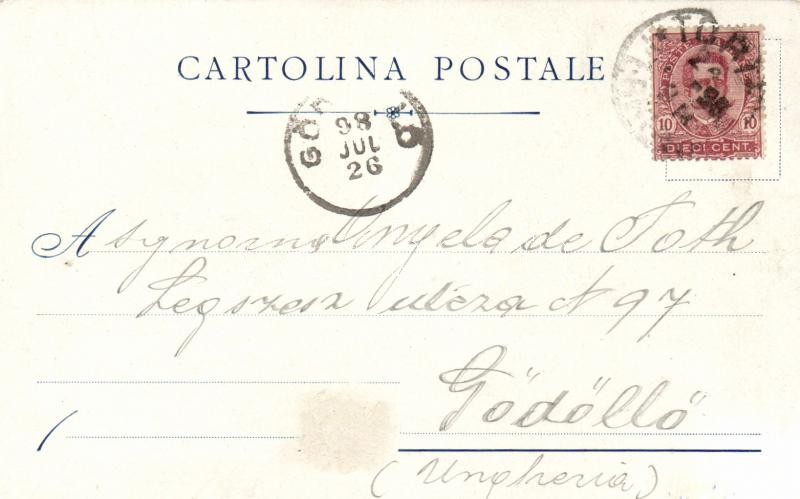 CARTOLINA POSTALE
TORINO
POSTE
10 10
DIECI CENT.
GÖD LO
98
JUL
26
A Signorina Angela de Toth
Legszesz utcza N 97
Gödöllő
(Ungheria)